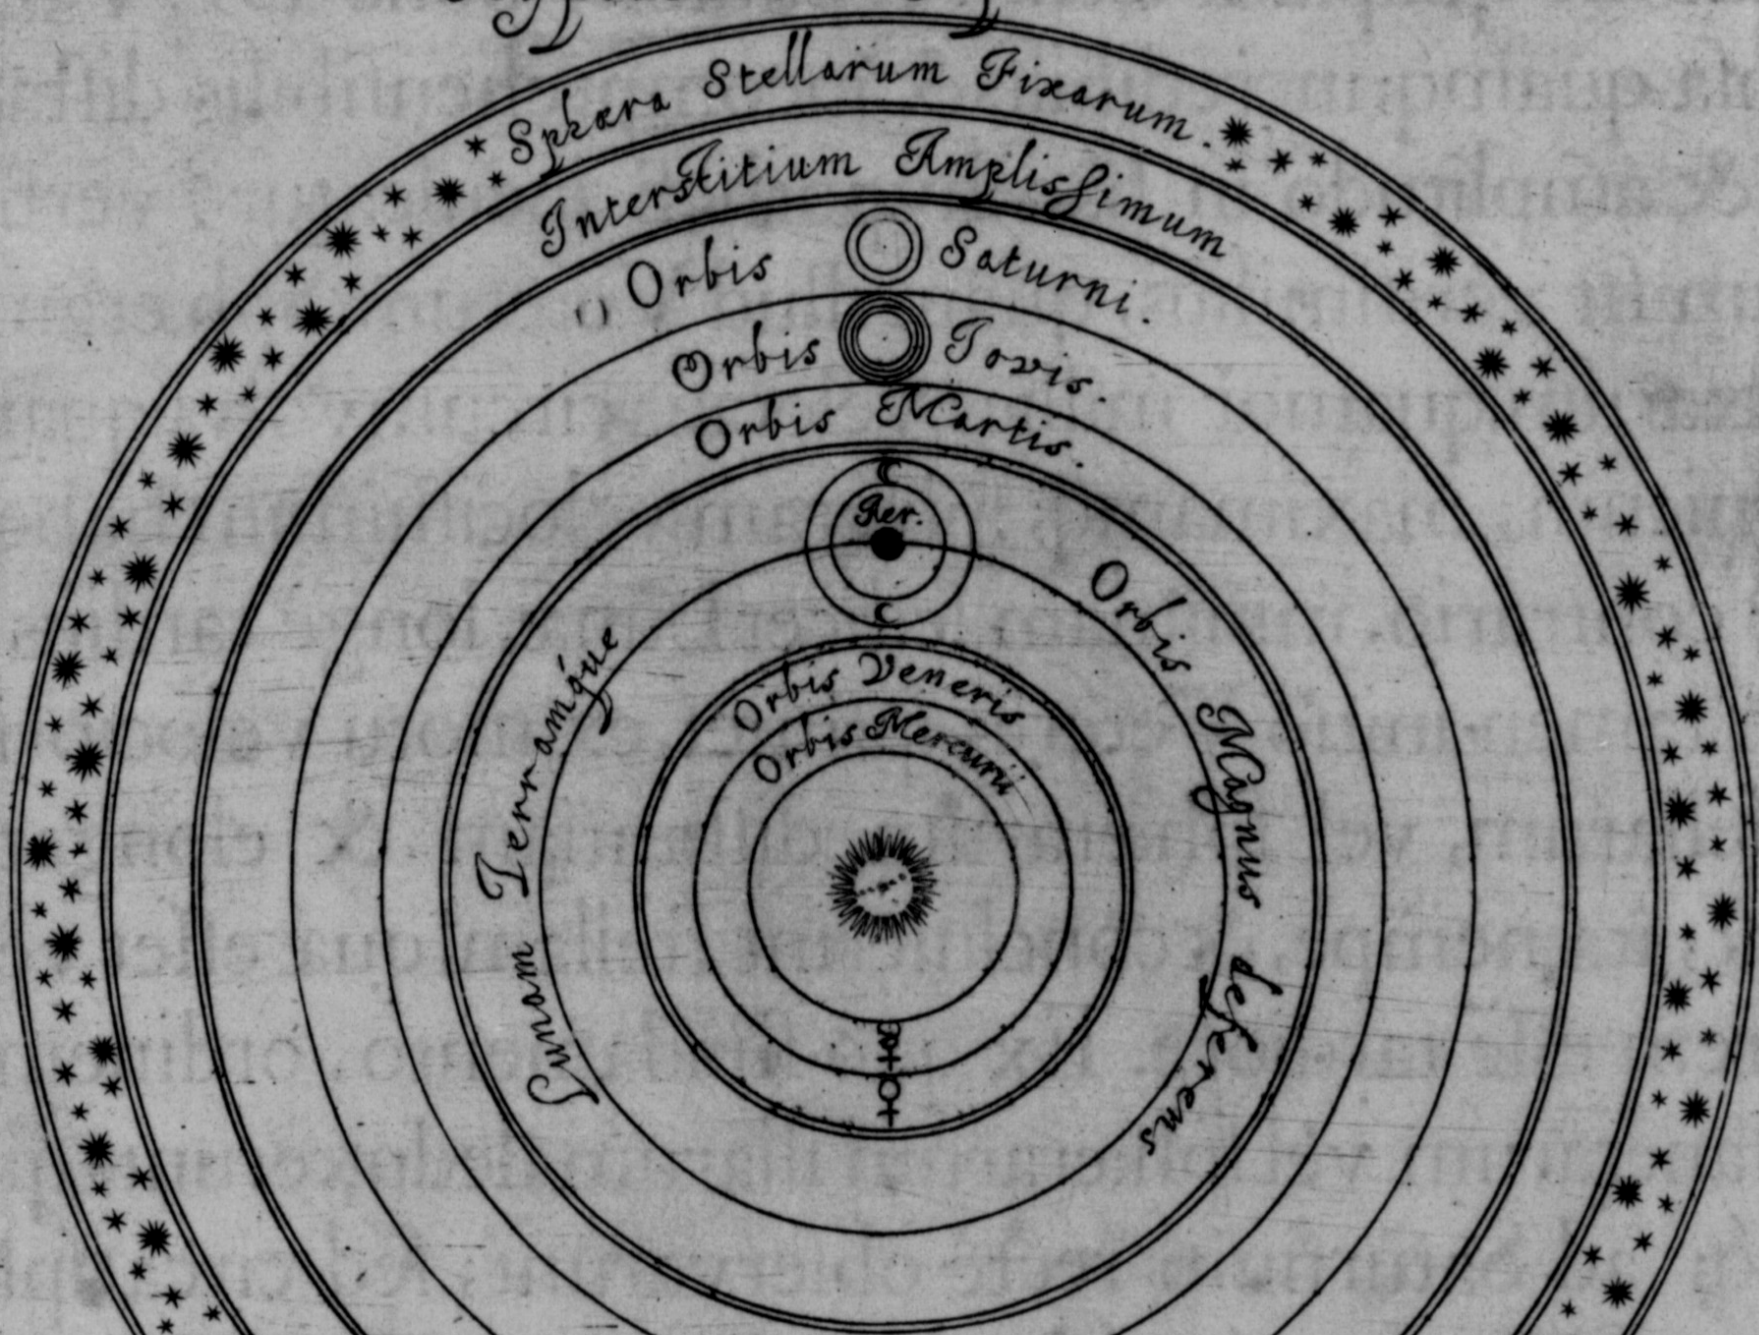 Sphæra Stellarum Fixarum.
Interstitium Amplissimum
Orbis Saturni.
Orbis Jovis.
Orbis Martis.
Aer.
Orbis Magnus deferens
Lunam Terramque
Orbis Veneris
Orbis Mercurii